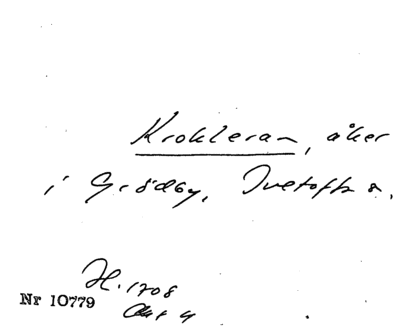 Krokleran, åker
i Grödby, Ivetofta s.
H. 1708
Akt 4
Nr 10779